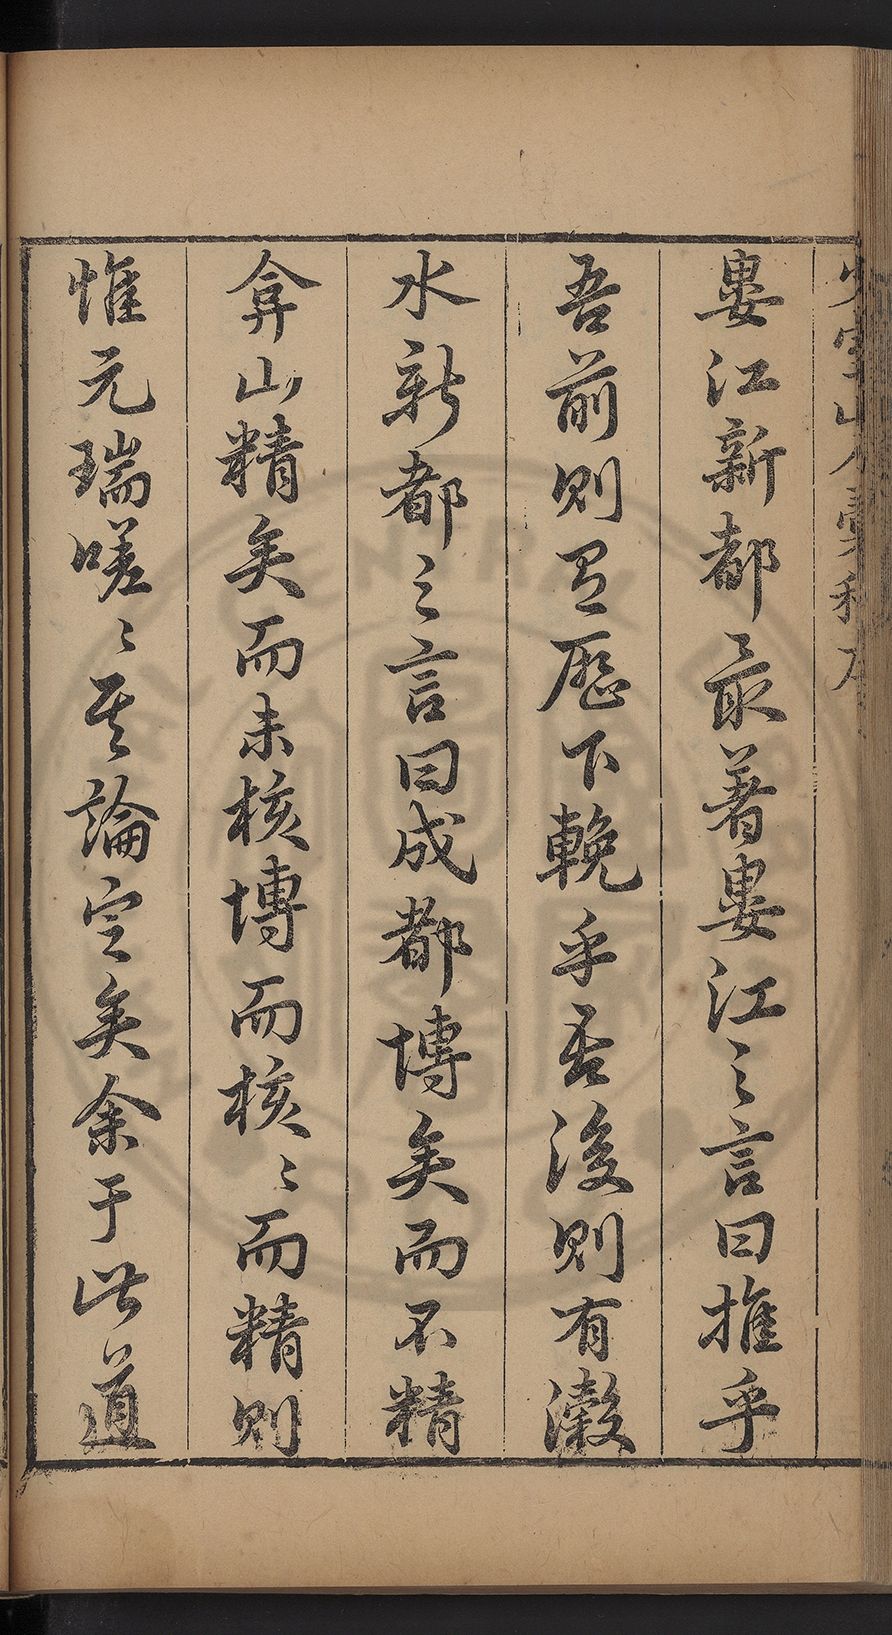 婁江新都最著婁江之言曰推乎
吾前則有歷下輓乎吾後則有瀫
水新都之言曰成都博矣而不精
弇山精矣而未核博而核〻而精則
惟元瑞嗟〻其論定矣余于此道